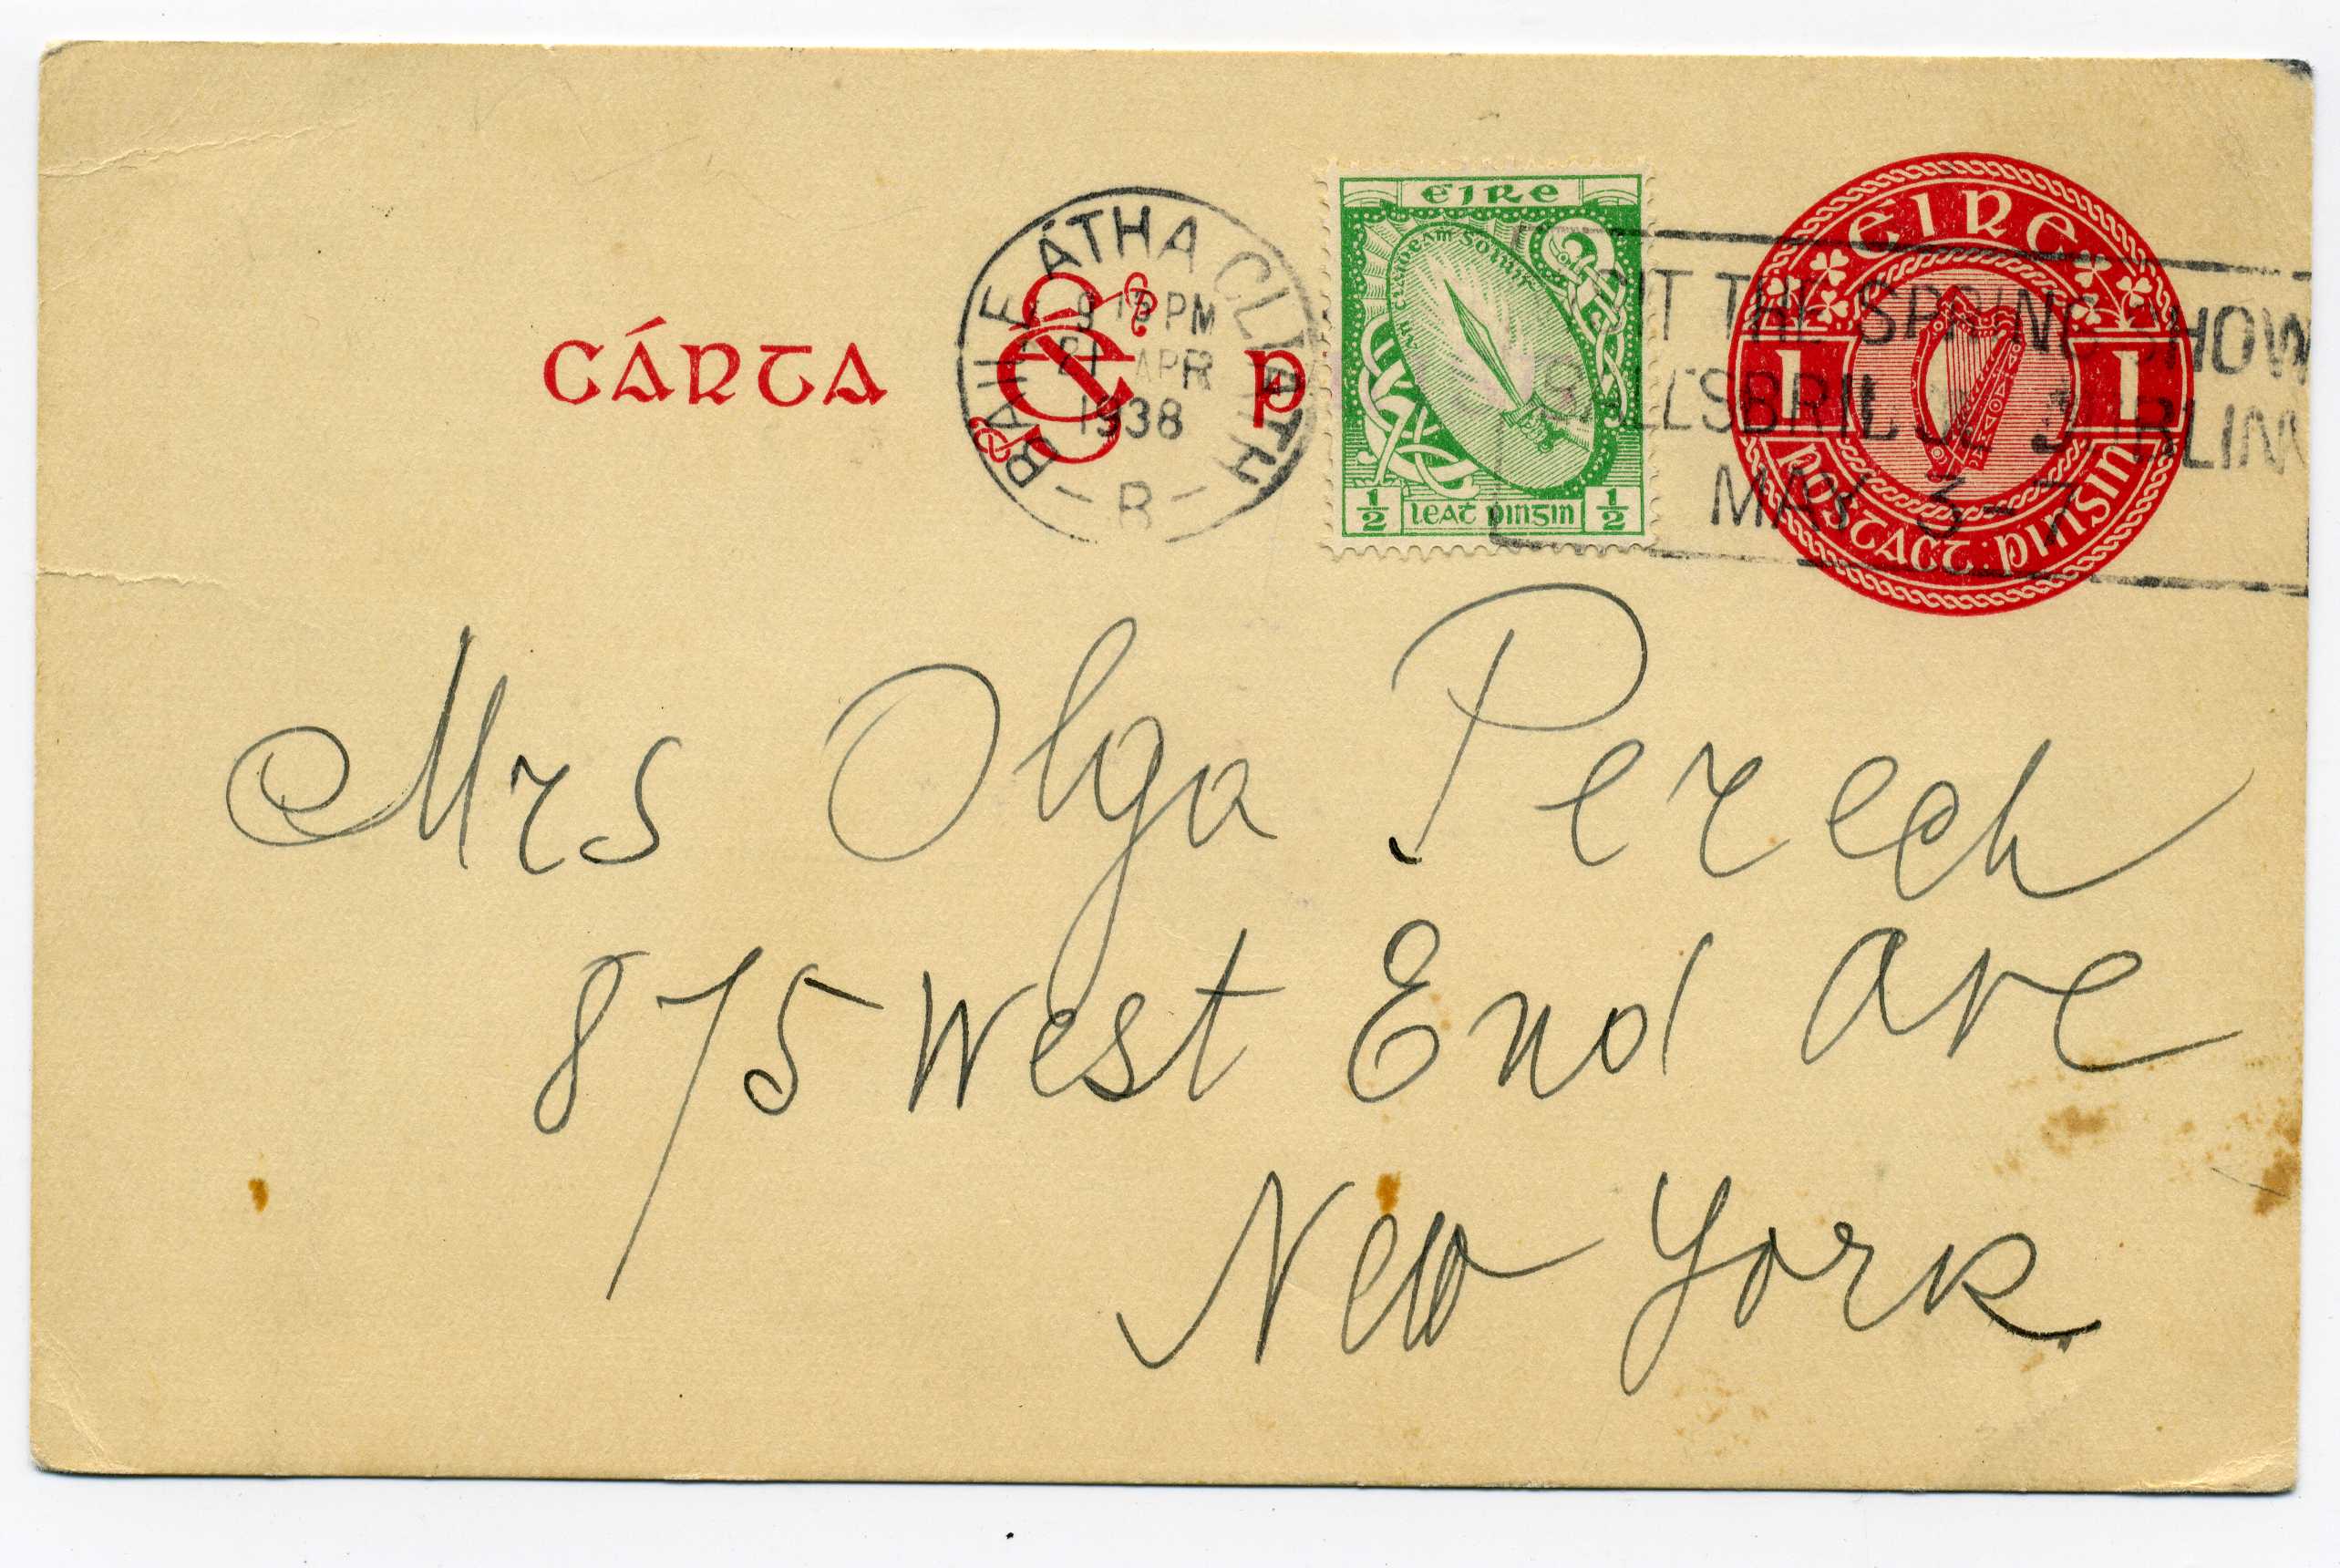 CÁRTA p
BAILE ÁTHA CLIATH
9 15 PM
21 APR
1938
B
ÉIRE
AN CLAIDEAM SOLUIS
1/2 LEAT PINGIN 1/2
THE SPRING SHOW
BALLSBRIDGE DUBLIN
MAY 3-7
ÉIRE
1 1
POSTACT PINSIN
Mrs Olga
875 West End Ave
New York